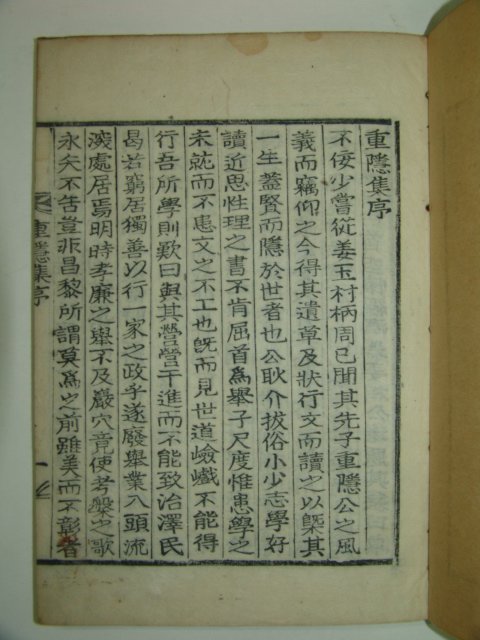 重隱集序
不佞少嘗從姜玉村柄周已聞其先子重隱公之風
義而竊仰之今得其遺草及狀行文而讀之以槩其
一生蓋賢而隱於世者也公耿介拔俗小少志學好
讀近思性理之書不肯屈首爲舉子尺度惟患學之
未就而不患文之不工也旣而見世道嶮巇不能得
行吾所學則歎曰與其營營干進而不能致治澤民
曷若窮居獨善以行一家之政乎遂廢舉業入頭流
深處居焉明時孝廉之舉不及巖穴竟使考槃之歌
永矢不告豈非昌黎所謂莫爲之前雖美而不彰者
重隱集序
一